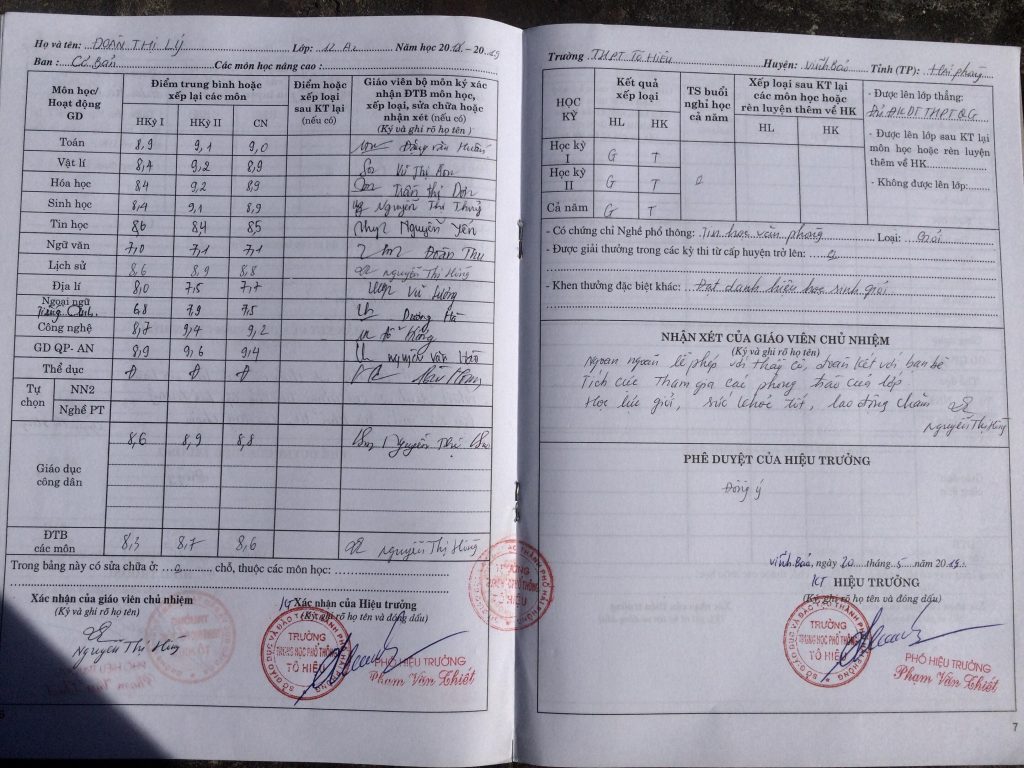 Họ và tên: ĐOÀN THỊ LÝ Lớp: 12 A2 Năm học 2018 – 2019
Ban : Cơ Bản Các môn học nâng cao :
Môn học/ Hoạt động GD
Điểm trung bình hoặc xếp loại các môn
HKỳ I HKỳ II CN
Điểm hoặc xếp loại sau KT lại (nếu có)
Giáo viên bộ môn ký xác nhận ĐTB môn học, xếp loại, sửa chữa hoặc nhận xét (nếu có)
(Ký và ghi rõ họ tên )
Toán 8,9 9,1 9,0 Đặng Văn
Vật lí 8,4 9,2 8,9 Vũ Thị
Hóa học 8,4 9,2 8,9 Trần Thị
Sinh học 8,4 9,1 8,9 Nguyễn Thị
Tin học 8,6 8,4 8,5 Nguyễn Yên
Ngữ văn 7,0 7,1 7,1 Đoàn Thu
Lịch sử 8,6 8,9 8,8 Nguyễn Thị Hùng
Địa lí 8,0 7,5 7,7 Vũ
Ngoại ngữ Tiếng Anh 6,8 7,9 7,5 Dương Hà
Công nghệ 8,7 9,4 9,2
GD QP- AN 8,9 9,6 9,4 Nguyễn Văn
Thể dục Đ Đ Đ
Tự chọn NN2
Nghề PT
Giáo dục công dân 8,6 8,9 8,8 Nguyễn Thị
ĐTB các môn 8,3 8,7 8,6 Nguyễn Thị Hùng
Trong bảng này có sửa chữa ở: 0 chỗ, thuộc các môn học:
Xác nhận của giáo viên chủ nhiệm
(Ký và ghi rõ họ tên)
Nguyễn Thị Hùng
KT Xác nhận của Hiệu trưởng
(Ký, ghi rõ họ tên và đóng dấu)
SỞ GIÁO DỤC VÀ ĐÀO TẠO THÀNH PHỐ HẢI PHÒNG
TRƯỜNG
TRUNG HỌC PHỔ THÔNG
TÔ HIỆU
PHÓ HIỆU TRƯỞNG
Phạm Văn Thiết
Trường THPT Tô Hiệu Huyện: Vĩnh Bảo Tỉnh (TP): Hải phòng
HỌC KỲ
Kết quả xếp loại
HL HK
TS buổi nghỉ học cả năm
Xếp loại sau KT lại các môn học hoặc rèn luyện thêm về HK
HL HK
Học kỳ I G T
Học kỳ II G T 0
Cả năm G T
- Được lên lớp thẳng:
Đủ ĐKDT THPT QG
- Được lên lớp sau KT lại
môn học hoặc rèn luyện
thêm về HK
- Không được lên lớp:
- Có chứng chỉ Nghề phổ thông: Tin học văn phòng Loại: Giỏi
- Được giải thưởng trong các kỳ thi từ cấp huyện trở lên: 0
- Khen thưởng đặc biệt khác: Đạt danh hiệu học sinh giỏi
NHẬN XÉT CỦA GIÁO VIÊN CHỦ NHIỆM
(Ký và ghi rõ họ tên)
Ngoan ngoãn lễ phép với thầy cô, đoàn kết với bạn bè
Tích cực tham gia các phong trào của lớp
Học lực giỏi, sức khỏe tốt, lao động chăm
Nguyễn Thị Hùng
PHÊ DUYỆT CỦA HIỆU TRƯỞNG
Đồng ý
Vĩnh Bảo, ngày 20 tháng 5 năm 2019
KT HIỆU TRƯỞNG
(Ký, ghi rõ họ tên và đóng dấu)
SỞ GIÁO DỤC VÀ ĐÀO TẠO THÀNH PHỐ HẢI PHÒNG
TRƯỜNG
TRUNG HỌC PHỔ THÔNG
TÔ HIỆU
PHÓ HIỆU TRƯỞNG
Phạm Văn Thiết
7